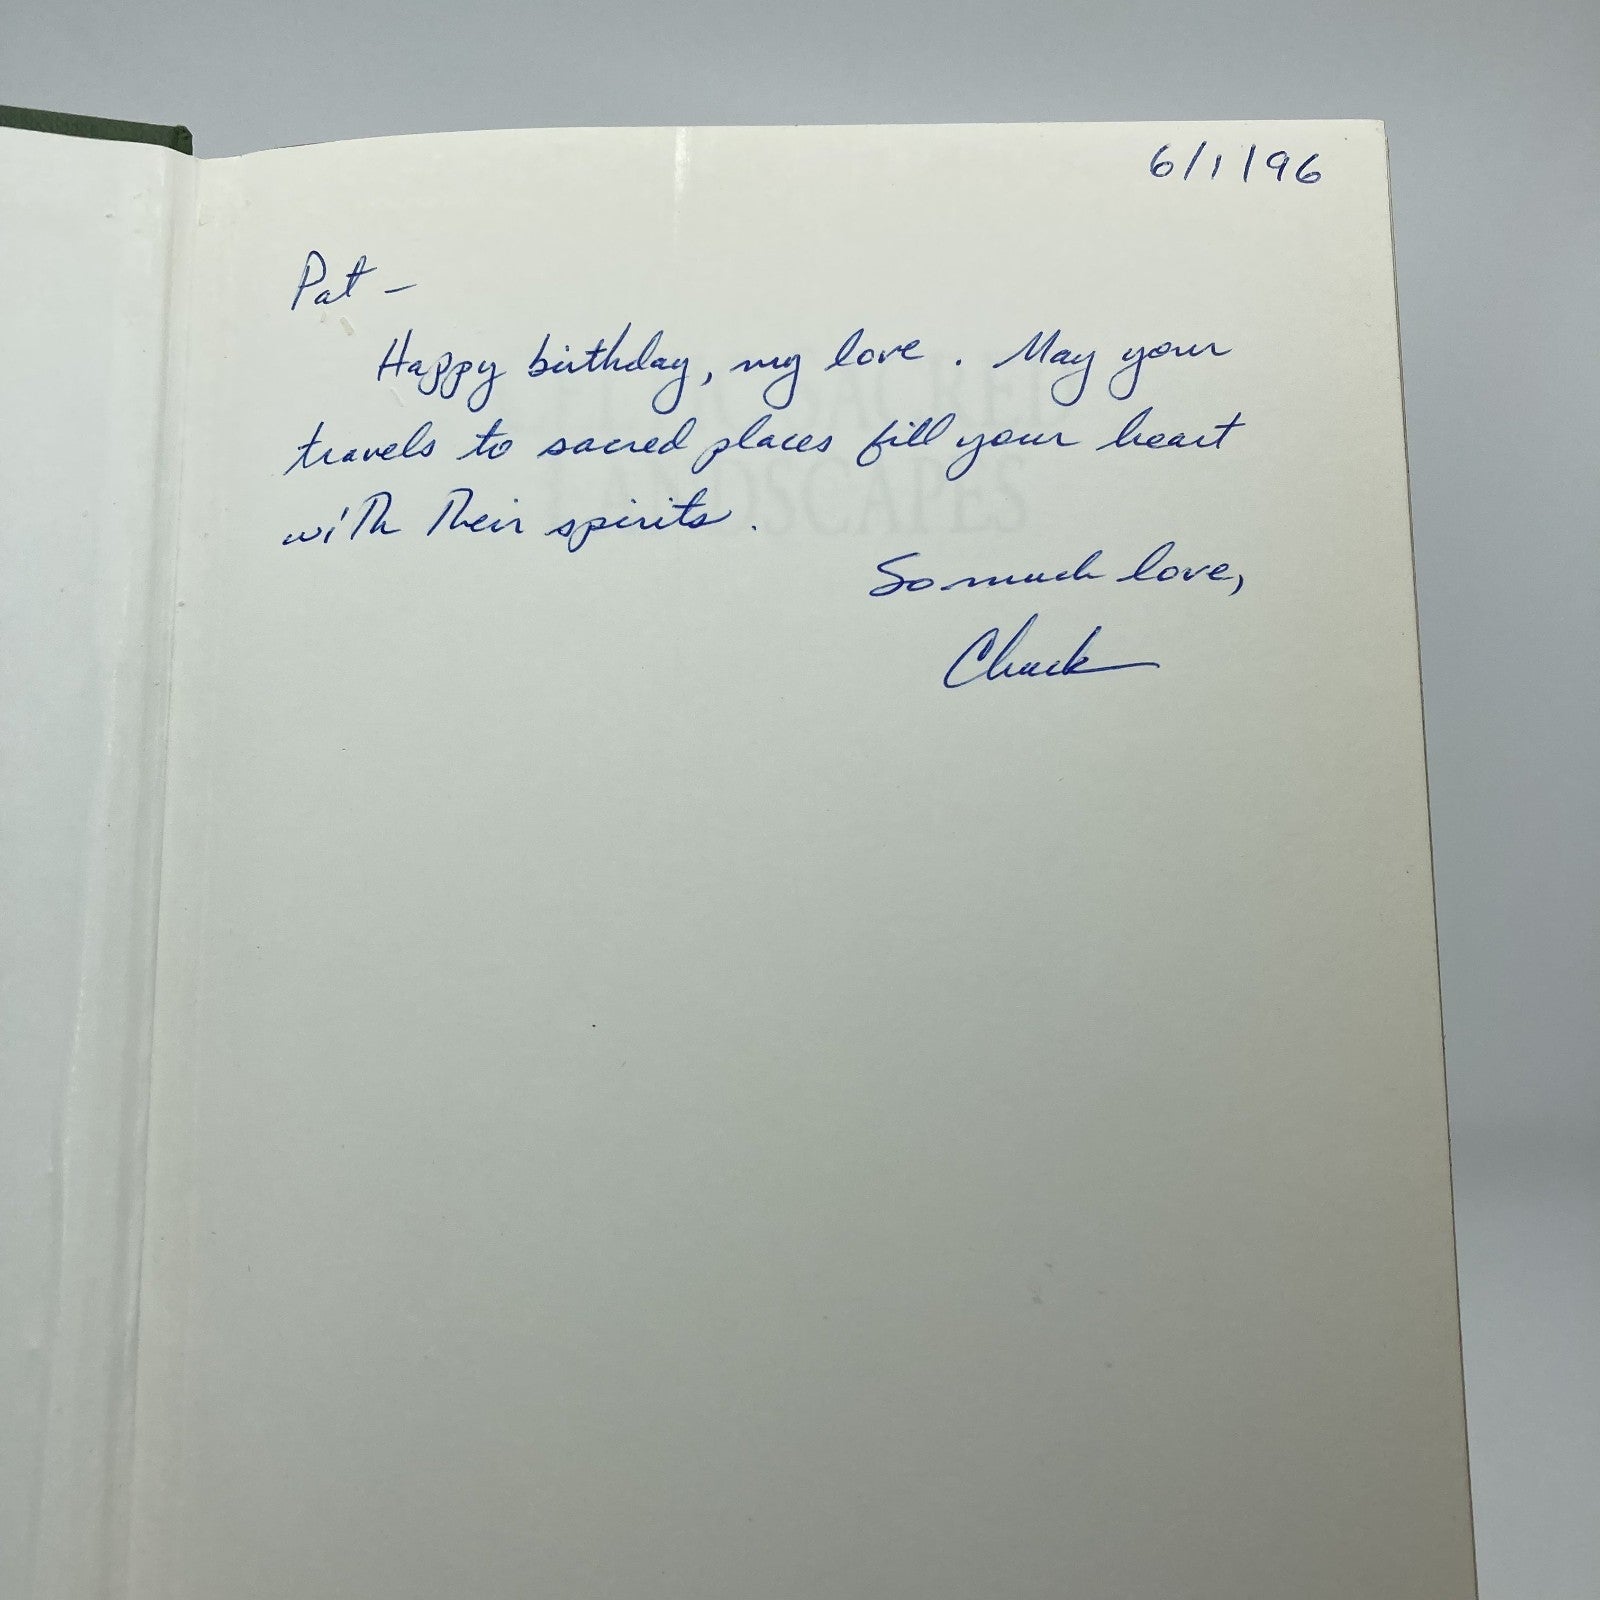 6/1/96
Pat -
Happy birthday, my love. May your
travels to sacred places fill your heart
with their spirits.
So much love,
Chuck
SACRED
LANDSCAPES